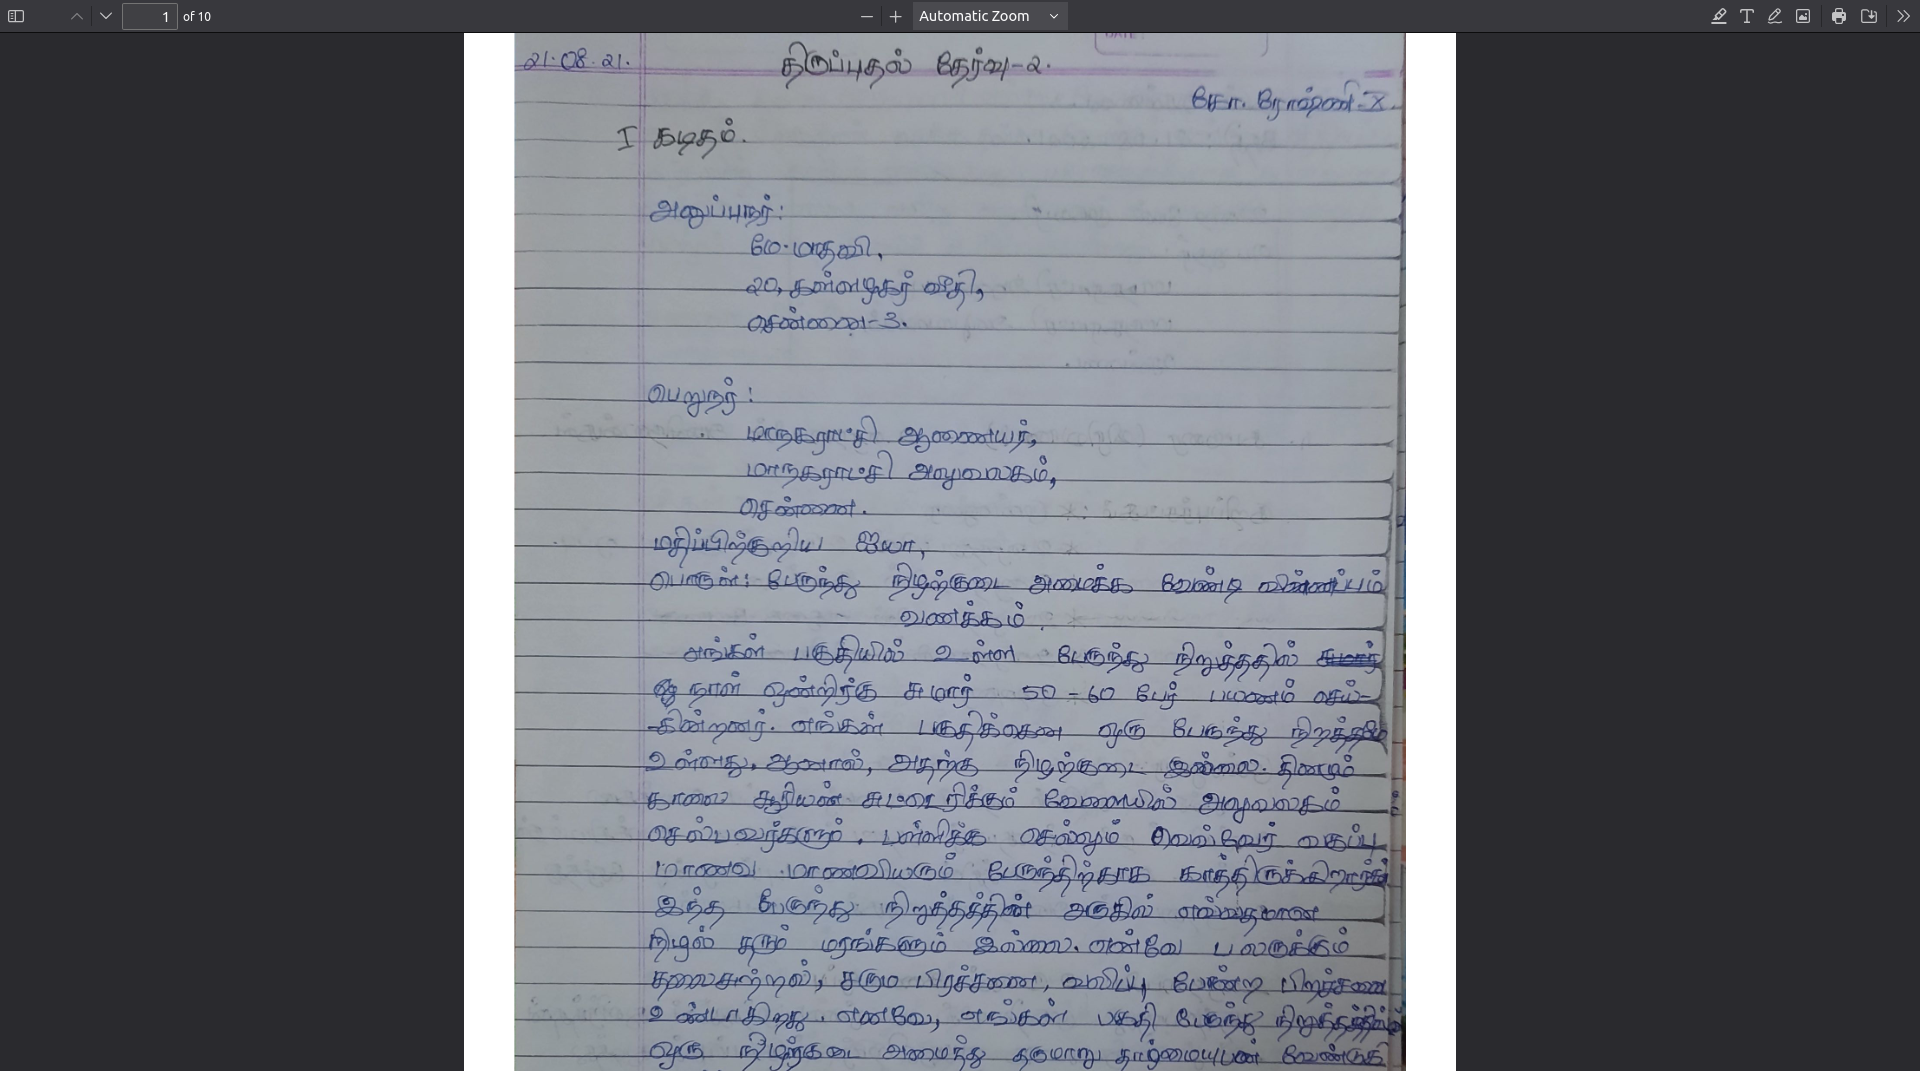 1 of 10 Automatic Zoom
21.08.21. திருப்புதல் தேர்வு-2.
சோ. ரோஷ்ணி-X.
I கடிதம்.
அனுப்புநர்:
மே.மாதவி,
20, கள்ளழகர் வீதி,
சென்னை-3.
பெறுநர்:
மாநகராட்சி ஆணையர்,
மாநகராட்சி அலுவலகம்,
சென்னை.
மதிப்பிற்குறிய ஐயா,
பொருள்: பேருந்து நிழற்குடை அமைக்க வேண்டி விண்ணப்பம்
வணக்கம்.
எங்கள் பகுதியில் உள்ள பேருந்து நிறுத்ததில்
நாள் ஒன்றிற்கு சுமார் 50-60 பேர் பயணம் செய்-
-கின்றனர். எங்கள் பகுதிக்கென ஒரு பேருந்து நிறத்தமே
உள்ளது. ஆனால், அதற்கு நிழற்குடை இல்லை. தினமும்
காலை சூரியன் சுடரெரிக்கும் வேளையில் அலுவலகம்
செல்பவர்களும். பள்ளிக்கு செல்லும் வெவ்வேர் வகுப்பு
மாணவ மாணவியரும் பேருந்திற்காக காத்திருக்கிறார்கள்
இந்த பேருந்து நிறுத்தத்தின் அருகில் எவ்வதமான
நிழல் தரும் மரங்களும் இல்லை. எனவே பலருக்கும்
தலைசுற்றல், சரும பிரச்சணை, வலிப்பு போன்ற பிரச்சனை
உண்டாகிறது. எனவே, எங்கள் பகுதி பேருந்து நிறுத்தத்தில்
ஒரு நிழற்குடை அமைத்து தருமாறு தாழ்மையுடன்